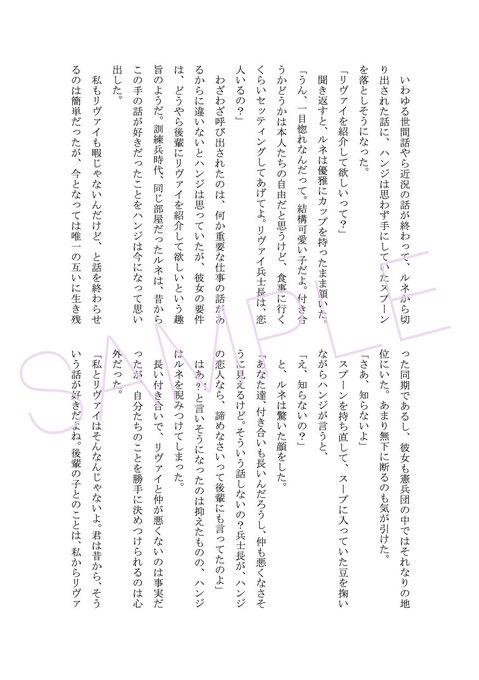 いわゆる世間話やら近況の話が終わって、ルネから切
り出された話に、ハンジは思わず手にしていたスプーン
を落としそうになった。
「リヴァイを紹介して欲しいって？」
聞き返すと、ルネは優雅にカップを持ったまま頷いた。
「うん、一目惚れなんだって。結構可愛い子だよ。付き合
うかどうかは本人たちの自由だと思うけど、食事に行く
くらいセッティングしてあげてよ。リヴァイ兵士長は、恋
人いるの？」
わざわざ呼び出されたのは、何か重要な仕事の話があ
るからに違いないとハンジは思っていたが、彼女の要件
は、どうやら後輩にリヴァイを紹介して欲しいという趣
旨のようだ。訓練兵時代、同じ部屋だったルネは、昔から
この手の話が好きだったことをハンジは今になって思い
出した。
私もリヴァイも暇じゃないんだけど、と話を終わらせ
るのは簡単だったが、今となっては唯一の互いに生き残
った同期であるし、彼女も憲兵団の中ではそれなりの地
位にいた。あまり無下に断るのも気が引けた。
「さあ、知らないよ」
スプーンを持ち直して、スープに入っていた豆を掬い
ながらハンジが言うと、
「え、知らないの？」
と、ルネは驚いた顔をした。
「あなた達、付き合いも長いんだろうし、仲も悪くなさそ
うに見えるけど。そういう話しないの？兵士長が、ハンジ
の恋人なら、諦めなさいって後輩にも言ってたのよ」
はあ？と言いそうになったのは抑えたものの、ハンジ
はルネを睨みつけてしまった。
長い付き合いで、リヴァイと仲が悪くないのは事実だ
ったが、自分たちのことを勝手に決めつけられるのは心
外だった。
「私とリヴァイはそんなんじゃないよ。君は昔から、そう
いう話が好きだよね。後輩の子とのことは、私からリヴァ
SAMPLE